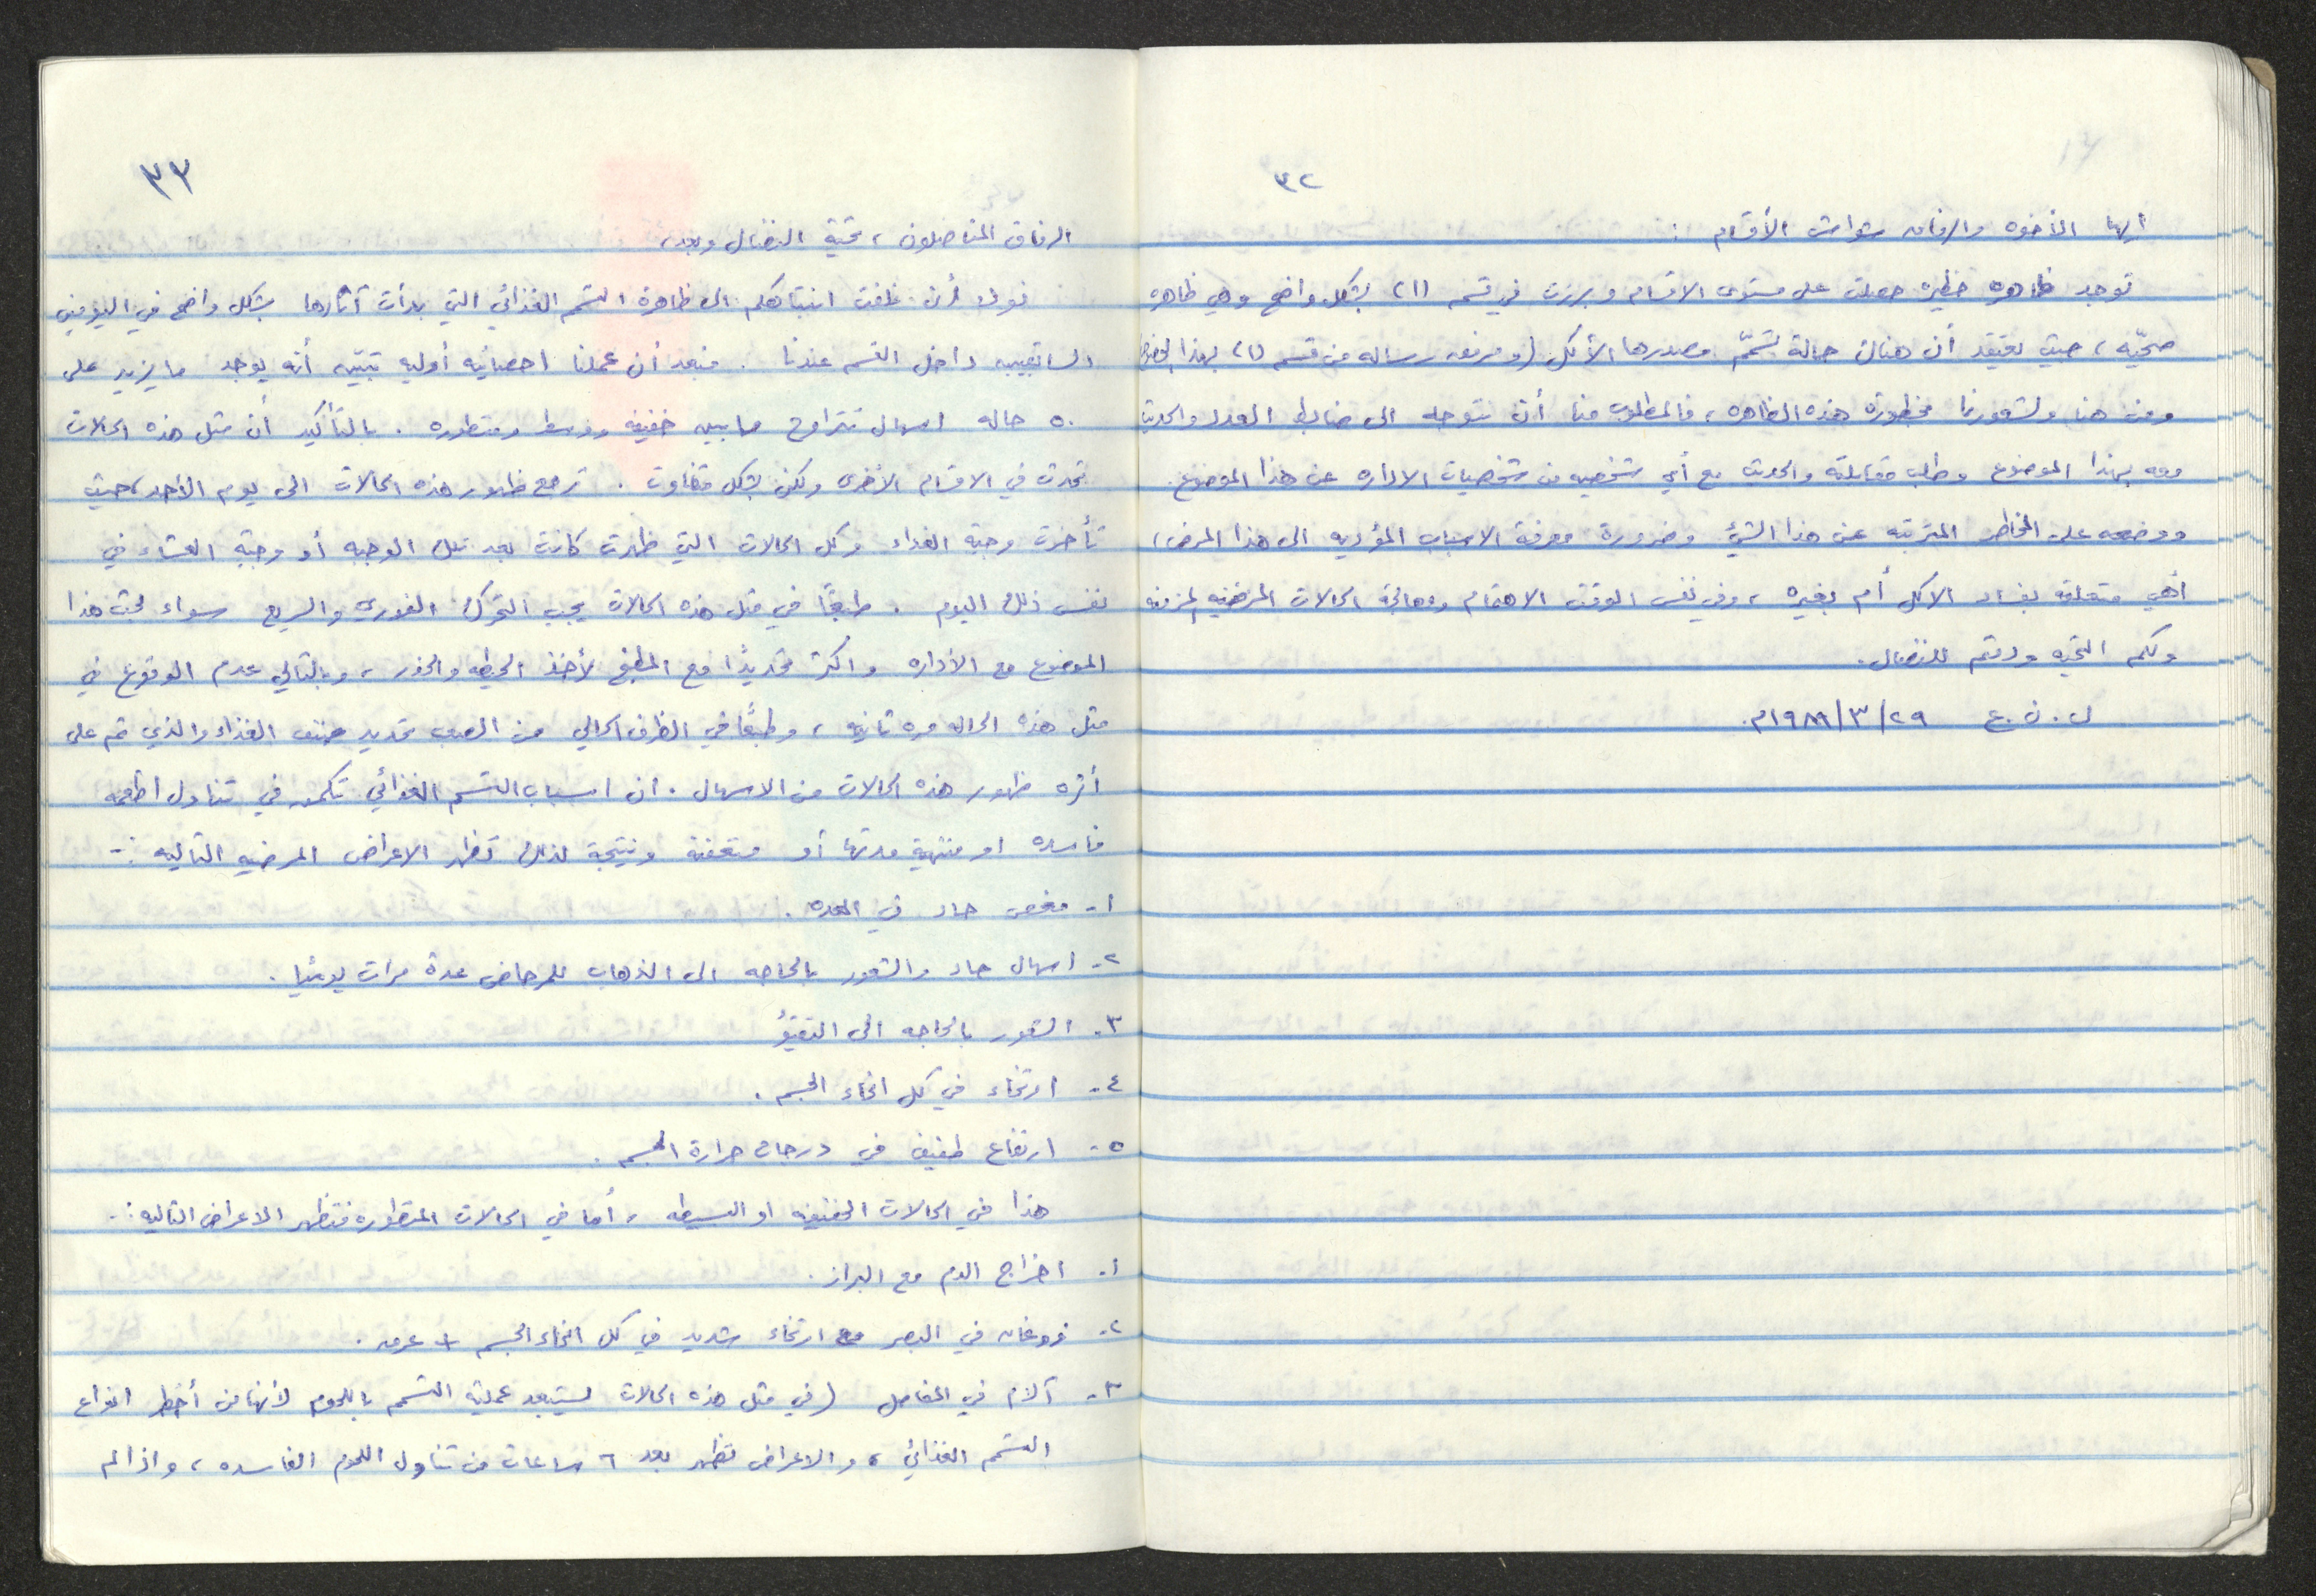 ٣٢
أيها الأخوه والرفاق شواش الأقسام :
توجد ظاهره خطيره حصلت على مستوى الاقسام وبرزت في قسم (١١) بشكل واضح وهي ظاهره
صحيّه، حيث نعتقد أن هنالك حالة تسمّم مصدرها الأكل (ومرفق رساله من قسم (١١) بهذا الخصوص
ومن هنا ولشعورنا بخطورة هذه الظاهره، فالمطلوب منا أن نتوجه الى ضابط العدد والحديث
معه بهذا الموضوع وطلب مقابلته والحديث مع أي شخصيه من شخصيات الاداره عن هذا الموضوع.
ووضعه على المخاطر المترتبه عن هذا الشيء وضرورة معرفة الاسباب المؤديه الى هذا المرض،
أهي متعلقه بفساد الاكل أم بغيره، وفي نفس الوقت الاهتمام ومعالجة الحالات المرضيه المزمنه
ولكم التحيه ودمتم للنضال.
ل. ن. ع ٢٩/٣/١٩٨٩م.
٣٣
الرفاق المناضلون، تحية النضال وبعد،
نود أن نلفت انتباهكم الى ظاهرة التسمم الغذائي التي بدأت آثارها بشكل واضح في اليومين
السابقين داخل القسم عندنا . فبعد أن عملنا احصائيه أوليه تبيّن أنه يوجد ما يزيد على
٥٠ حاله اسهال تتراوح ما بين خفيفه ووسط ومتطوره . بالتأكيد أن مثل هذه الحالات
تحدث في الاقسام الأخرى ولكن بشكل متفاوت . ترجع ظهور هذه الحالات الى يوم الأحد، حيث
تأخرت وجبة الغداء وكل الحالات التي ظهرت كانت بعد تلك الوجبه أو وجبة العشاء في
نفس ذلك اليوم . طبعًا في مثل هذه الحالات يجب التحرك الفوري والسريع سواء لبحث هذا
الموضوع مع الأداره واكثر تحديدًا مع المطبخ لأخذ الحيطه والحذر، وبالتالي عدم الوقوع في
مثل هذه الحاله مره ثانيه، وطبعًا في الظرف الحالي من الصعب تحديد صنف الغذاء والذي تم على
أثره ظهور هذه الحالات من الاسهال . ان اسباب التسمم الغذائي تكمن في تناول أطعمه
فاسده او منتهية مدتها أو متعفنه ونتيجة لذلك تظهر الاعراض المرضيه التاليه :-
١- مغص حاد في المعده .
٢- اسهال حاد والشعور بالحاجه الى الذهاب للمرحاض عدة مرات يوميًا .
٣- الشعور بالحاجه الى التقيؤ
٤- ارتخاء في كل انحاء الجسم .
٥- ارتفاع طفيف في درجات حرارة الجسم .
هذا في الحالات الخفيفه او البسيطه، أما في الحالات المتطوره فتظهر الاعراض التاليه :-
١- اخراج الدم مع البراز.
٢- زوغان في البصر مع ارتخاء شديد في كل انحاء الجسم + عرق .
٣- آلام في المفاصل (في مثل هذه الحالات يستبعد عملية التسمم باللحوم لأنها من أخطر انواع
التسمم الغذائي، والاعراض تظهر بعد ٦ ساعات من تناول اللحوم الفاسده، واذا لم